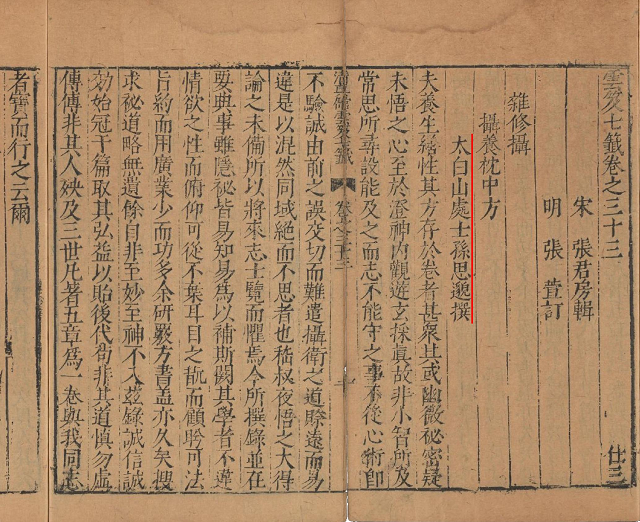 雲笈七籤卷之三十三
仕三
宋 張君房輯
明 張萱訂
雜修攝
攝養枕中方
太白山處士孫思邈撰
夫養生繕性其方存於卷者甚衆其或幽微秘密疑
未悟之心至於澄神內觀遊玄採眞故非小智所及
常思所尋設能及之而志不能守之事不從心術卽
卷之三十三
一
不驗誠由前之誤交切而難遣攝衛之道賖遠而易
違是以混然同域絕而不思者也嵇叔夜悟之大得
論之未備所以將來志士覽而懼焉今所撰錄並在
要典事雖隱秘皆易知易爲以補斯闕其學者不違
情欲之性而俯仰可從不棄耳目之翫而顧眄可法
旨約而用廣業少而功多余硏覈方書蓋亦久矣搜
求祕道略無遺餘自非至妙至神不入茲錄誠信誠
効始冠于篇取其弘益以貽後代苟非其道愼勿虛
傳傳非其人殃及三世凡著五章爲一卷與我同志
者寶而行之云爾